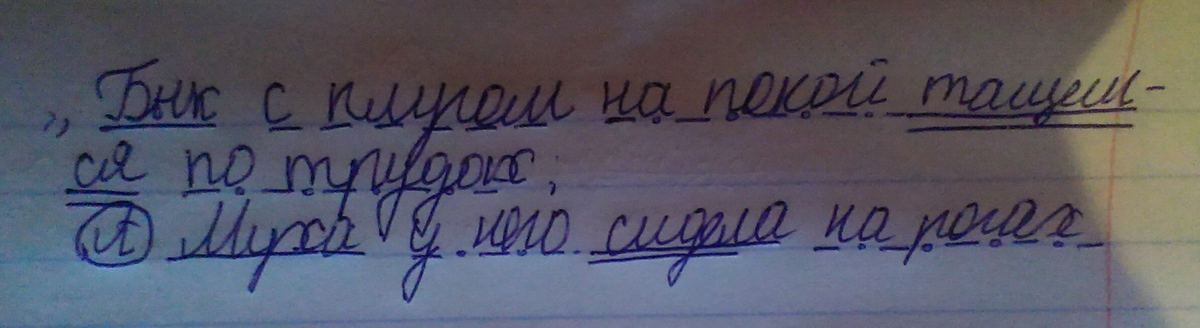 „Бык с плугом на покой тащил-
ся по трудах;
А Муха у него сидела на рогах